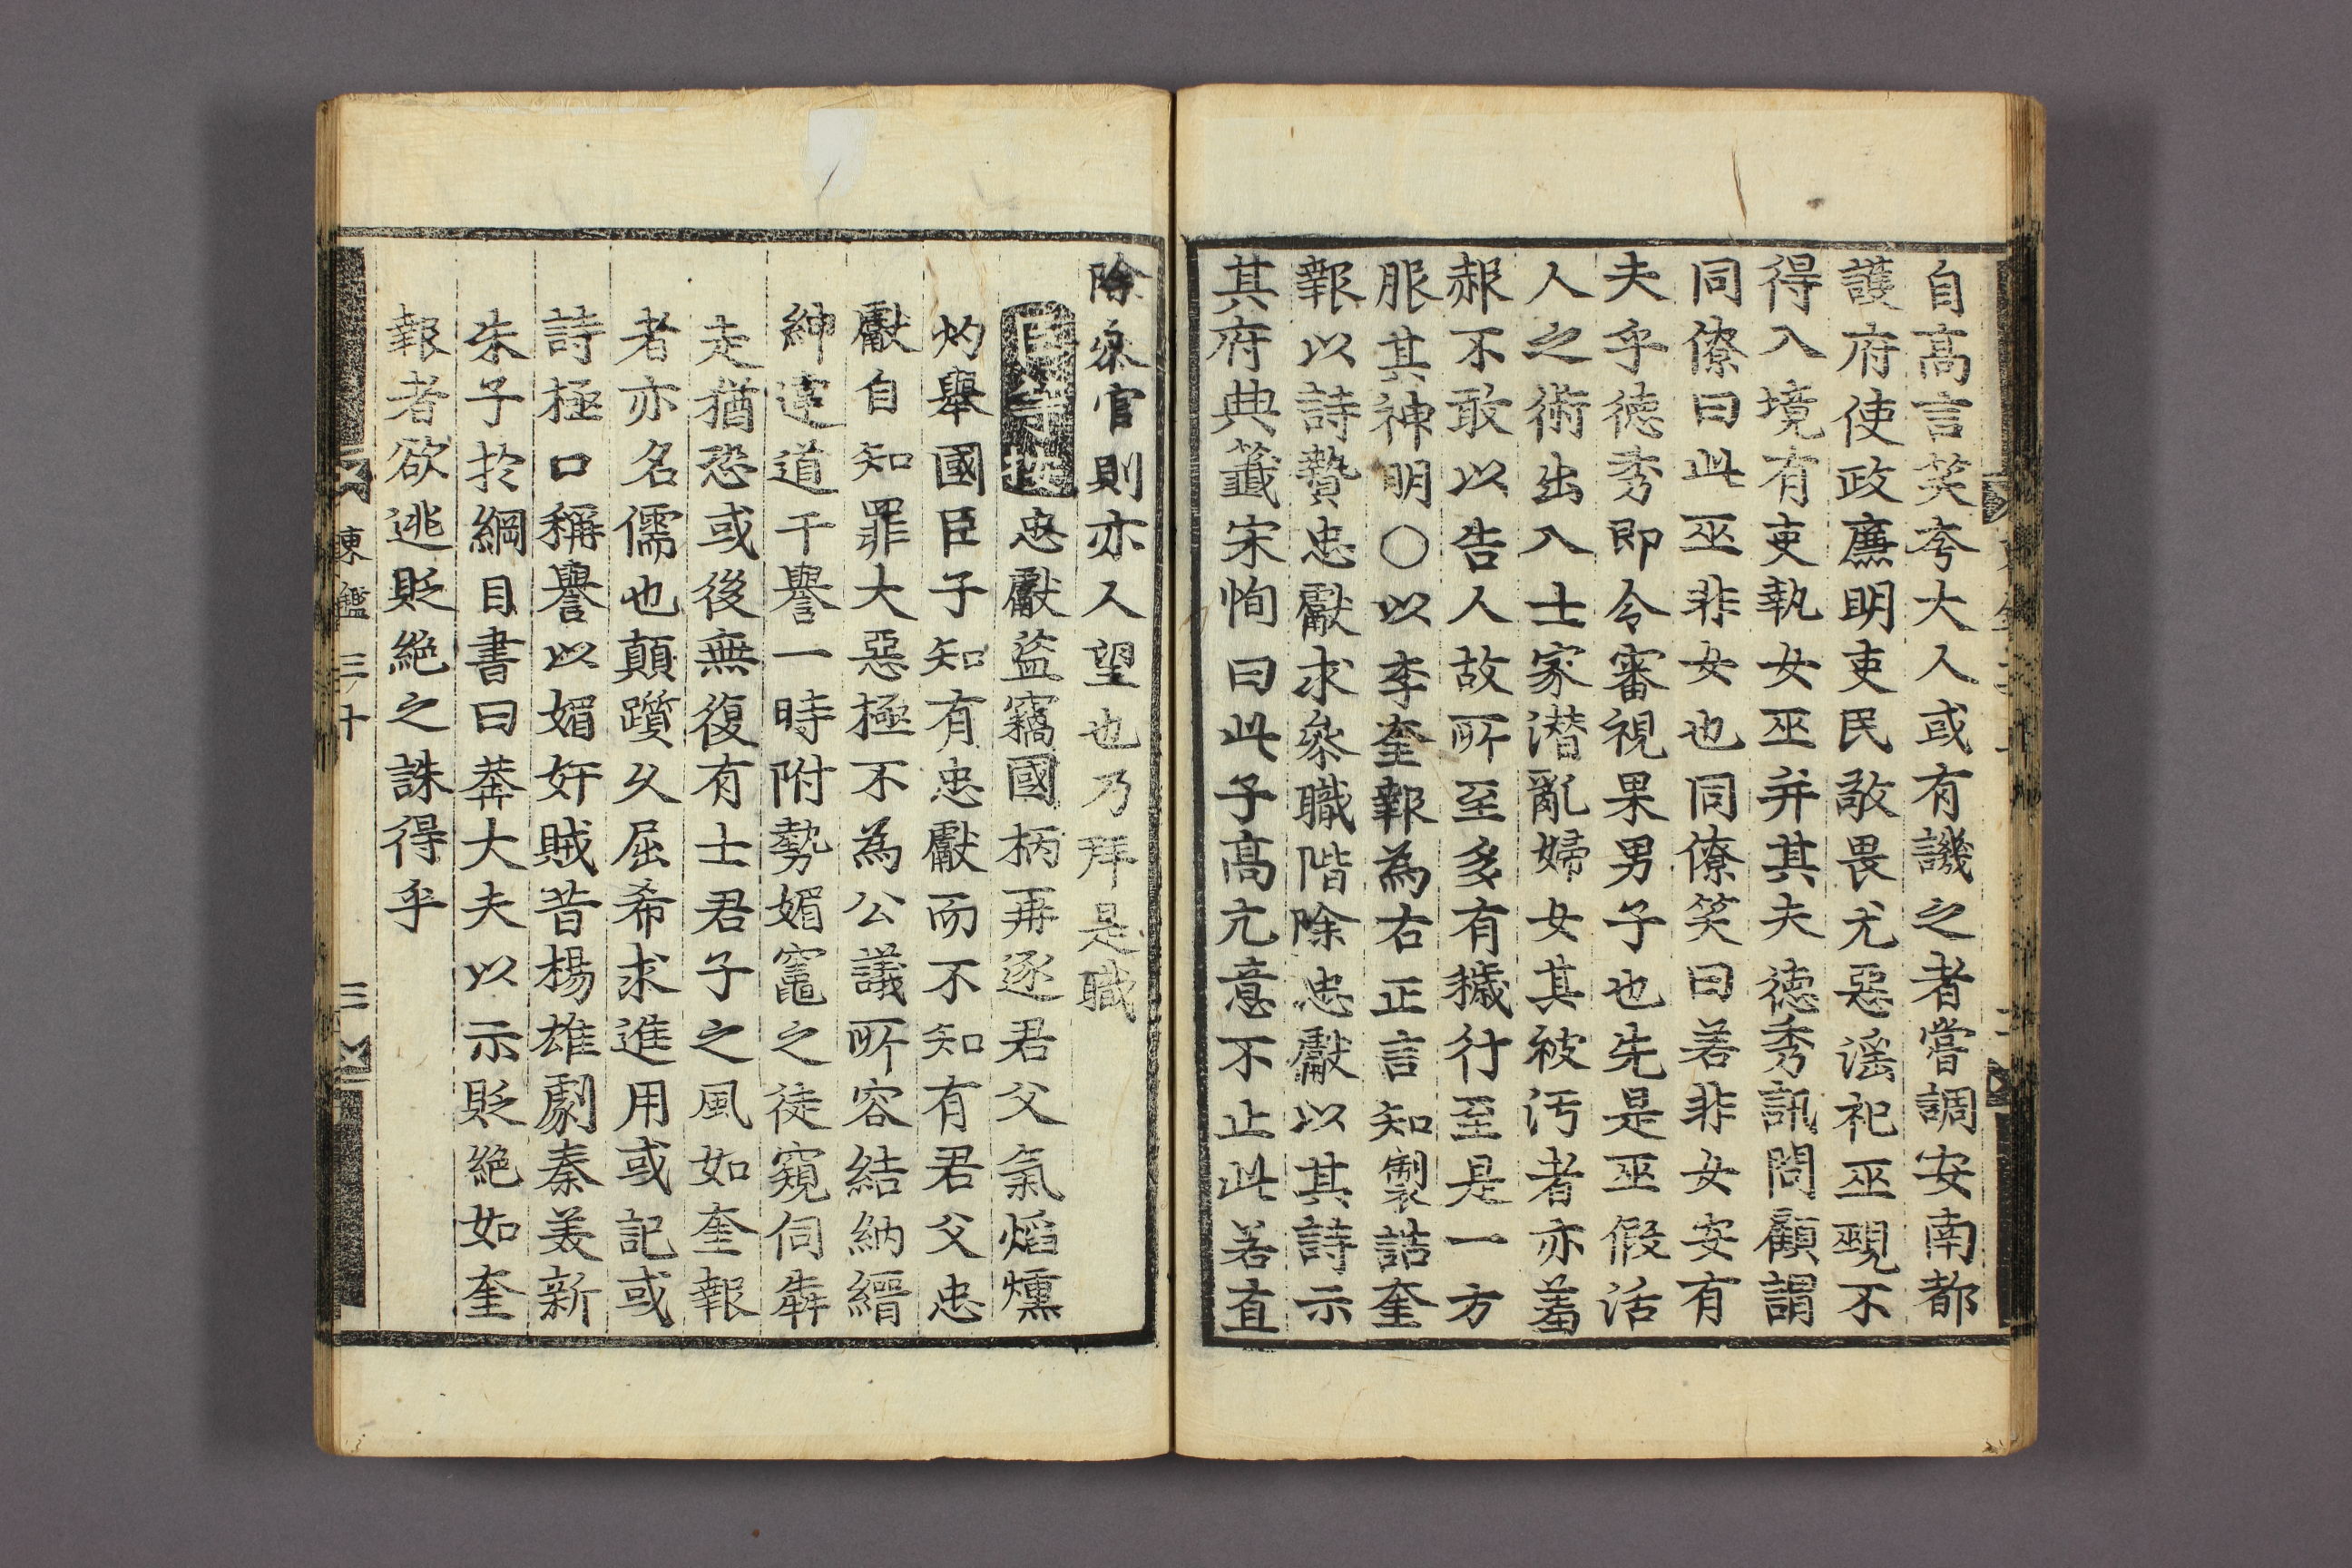 自高言笑夸大人或有譏之者嘗調安南都
護府使政廉明吏民敬畏尤惡滛祀巫覡不
得入境有吏執女巫并其夫德秀訊問顧謂
同僚曰此巫非女也同僚笑曰若非女安有
夫乎德秀即令審視果男子也先是巫假活
人之術出入士家潜亂婦女其被汚者亦羞
赧不敢以告人故所至多有穢行至是一方
服其神明○以李奎報為右正言知製誥奎
報以詩贄忠獻求叅職階除忠獻以其詩示
其府典籤宋恂曰此子高亢意不止此若直
除叅官則亦人望也乃拜是職
臣等按忠獻盜竊國柄再逐君父氣熖燻
灼舉國臣子知有忠獻而不知有君父忠
獻自知罪大惡極不為公議所容結納縉
紳達道干譽一時附勢媚竈之徒窺伺犇
走猶恐或後無復有士君子之風如奎報
者亦名儒也顛躓久屈希求進用或記或
詩極口稱譽以媚奸賊昔楊雄劇秦美新
朱子於綱目書曰莽大夫以示貶絶如奎
報者欲逃貶絶之誅得乎
東鑑三十 三